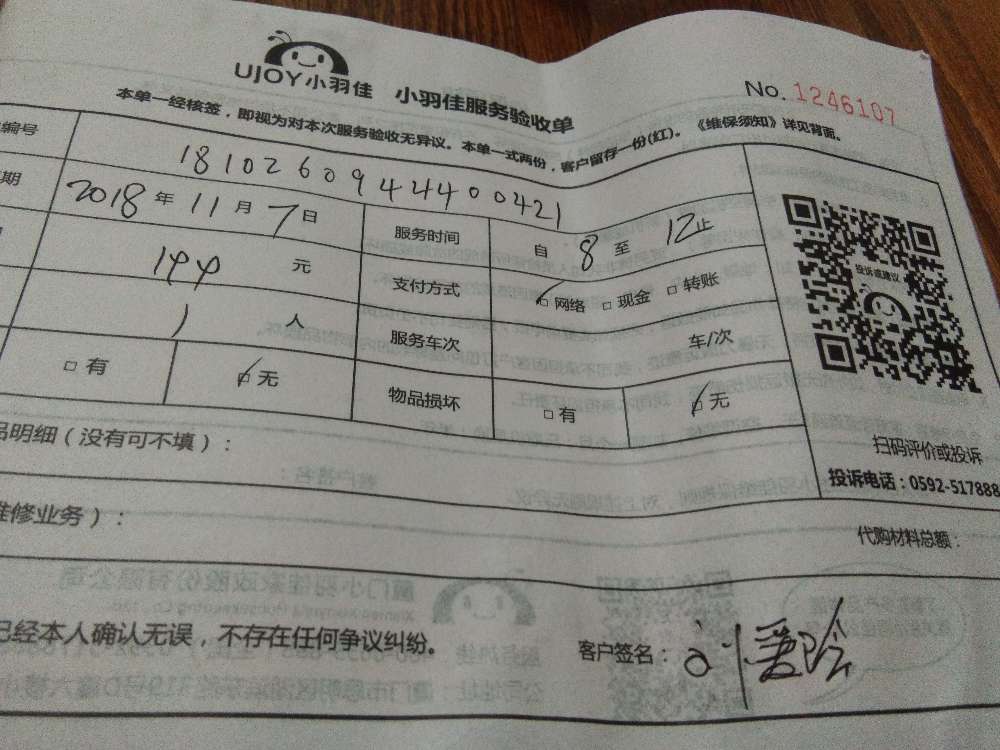 UJOY小羽佳 小羽佳服务验收单
No. 1246107
本单一经核签，即视为对本次服务验收无异议。本单一式两份，客户留存一份(红)。《维保须知》详见背面。
编号 18102609444400421
期 2018年11月7日 服务时间 自8至12止
144元 支付方式 ☑网络 □现金 □转账
1人 服务车次 车/次
□有 ☑无 物品损坏 □有 ☑无
投诉或建议
扫码评价或投诉
投诉电话：0592-517888
品明细（没有可不填）：
维修业务）：
代购材料总额：
已经本人确认无误，不存在任何争议纠纷。
客户签名：